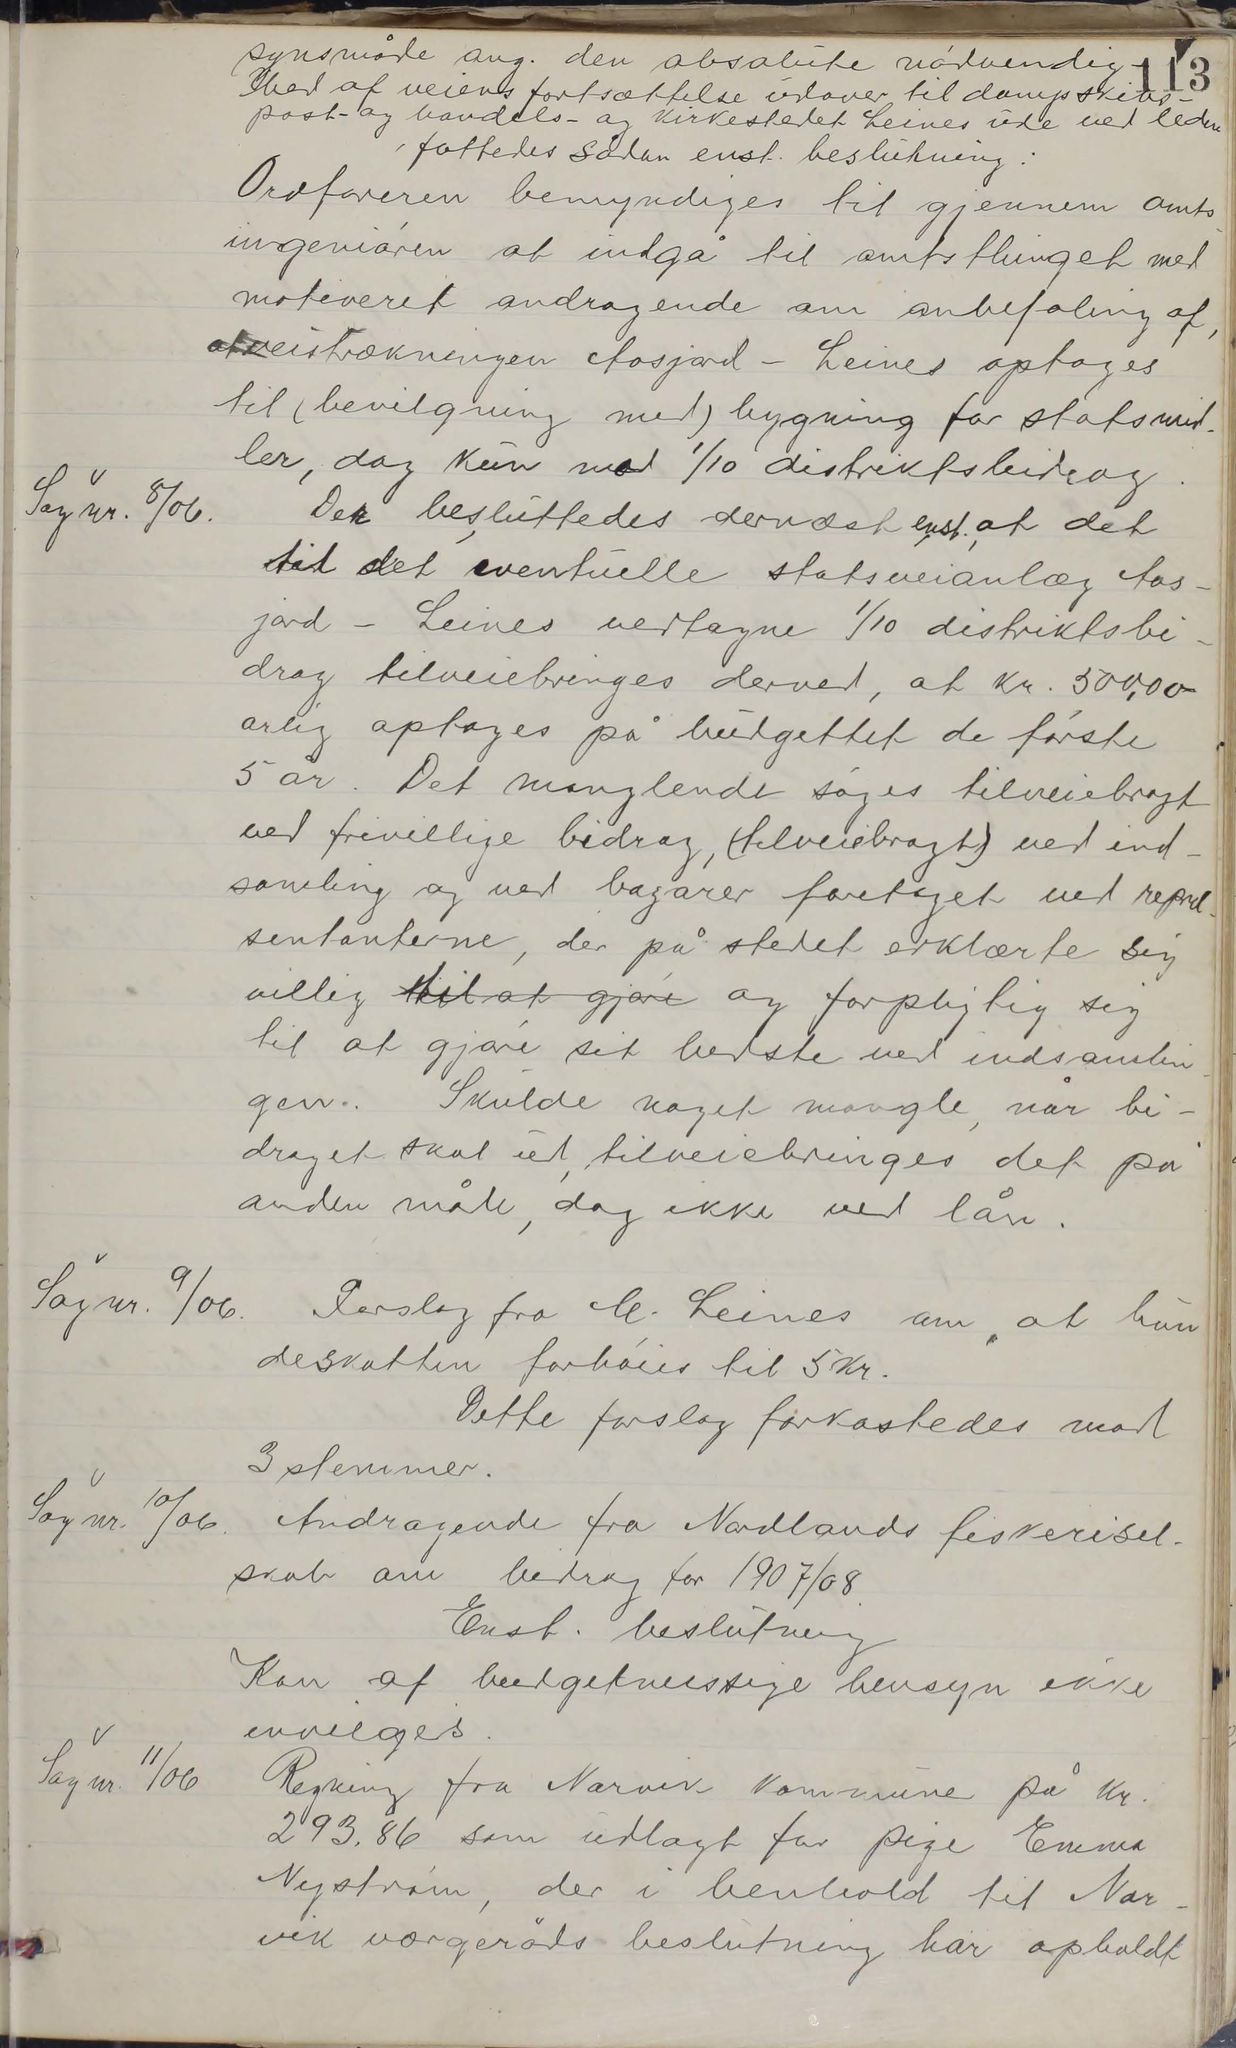 113
synsmåde ang. den absolute nödvendig-
hed af veiens fortsættelse udover til dampskibs-
post- og handels- og kirkestedet Leines ude ved leden
fattedes sådan enst. beslutning:
Ordföreren bemyndiges til gjennem amts
ingeniören at indgå til amtsthinget med
motiveret andragende om anbefaling af,
at veistrækningen Aasjord - Leines optages
til (bevilgning med) bygning for statsmid-
ler, dog kun mod 1/10 distriktsbidrag.
Sag nr. 8/06. Der besluttedes dernæst enst. at det
til det eventuelle statsveianlæg Aas-
jord - Leines vedtagne 1/10 distriktsbi-
drag tilveiebringes derved, at kr. 500,00
årlig optages på budgettet de förste
5 år. Det manglende söges tilveiebragt
ved frivillige bidrag, (tilveiebragt) ved ind-
samling og ved bazarer foretaget ved repræ-
sentanterne, der på stedet erklærte sig
villig til at gjöre og forpligtig sig
til at gjöre sit bedste ved indsamlin-
gen. Skulde noget mangle, når bi-
draget skal ud, tilveiebringes det på
anden måde, dog ikke ved lån.
Sag nr. 9/06. Forslag fra M. Leines om at hun
deskatten forhöies til 5 kr.
Dette forslag forkastedes mod
3 stemmer.
Sag nr. 10/06. Andragende fra Nordlands fiskerisel-
skab om bidrag for 1907/08.
Enst. beslutning
Kan af budgetmessige hensyn ikke
indvilges.
Sag nr. 11/06 Regning fra Narvik kommune på kr.
293,86 som udlagt for pige Emma
Nyström, der i henhold til Nar-
vik værgeråds beslutning har opholdt